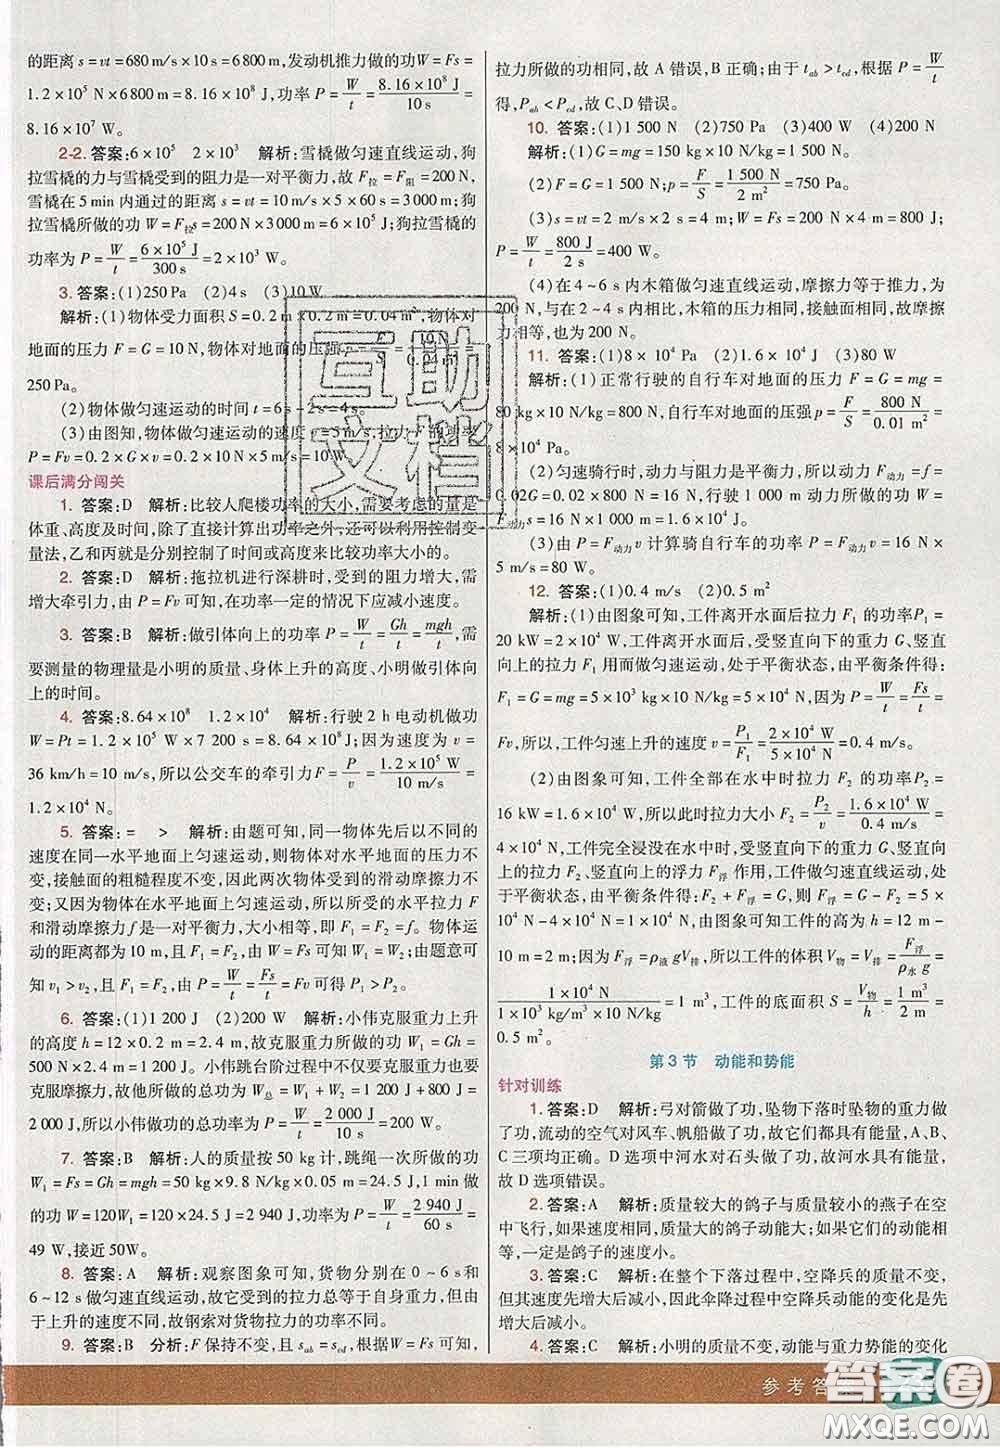 的距离 s = vt = 680 m/s × 10 s = 6 800 m, 发动机推力做的功 W = Fs =
1.2 × 10⁵ N × 6 800 m = 8.16 × 10⁸ J, 功率 P = W/t = 8.16 × 10⁸ J/10 s =
8.16 × 10⁷ W。
2-2. 答案:6 × 10⁵ 2 × 10³ 解析:雪橇做匀速直线运动,狗
拉雪橇的力与雪橇受到的阻力是一对平衡力,故 F拉 = F阻 = 200 N,
雪橇在 5 min 内通过的距离 s = vt = 10 m/s × 5 × 60 s = 3 000 m;狗
拉雪橇所做的功 W = F拉s = 200 N × 3 000 m = 6 × 10⁵ J;狗拉雪橇的
功率为 P = W/t = 6 × 10⁵ J/300 s = 2 × 10³ W。
3. 答案:(1)250 Pa (2)4 s (3)10 W
解析:(1)物体受力面积 S = 0.2 m × 0.2 m = 0.04 m², 物体对
地面的压力 F = G = 10 N, 物体对地面的压强 10 N/0.04 m² =
250 Pa。
(2)物体做匀速运动的时间 t = 6 s - 2 s = 4 s。
(3)由图知,物体做匀速运动的速度 v = 5 m/s, 拉力 F 的功率
P = Fv = 0.2 × G × v = 0.2 × 10 N × 5 m/s = 10 W。
课后满分闯关
1. 答案:D 解析:比较人爬楼功率的大小,需要考虑的量是
体重、高度及时间,除了直接计算出功率之外,还可以利用控制变
量法,乙和丙就是分别控制了时间或高度来比较功率大小的。
2. 答案:D 解析:拖拉机进行深耕时,受到的阻力增大,需
增大牵引力,由 P = Fv 可知,在功率一定的情况下应减小速度。
3. 答案:B 解析:做引体向上的功率 P = W/t = Gh/t = mgh/t, 需
要测量的物理量是小明的质量、身体上升的高度、小明做引体向
上的时间。
4. 答案:8.64 × 10⁸ 1.2 × 10⁴ 解析:行驶 2 h 电动机做功
W = Pt = 1.2 × 10⁵ W × 7 200 s = 8.64 × 10⁸ J;因为速度为 v =
36 km/h = 10 m/s, 所以公交车的牵引力 F = P/v = 1.2 × 10⁵ W/10 m/s =
1.2 × 10⁴ N。
5. 答案:= > 解析:由题可知,同一物体先后以不同的
速度在同一水平地面上匀速运动,则物体对水平地面的压力
不变,接触面的粗糙程度不变,因此两次物体受到的滑动摩擦力不
变;又因为物体在水平地面上匀速运动,所以所受的水平拉力 F
和滑动摩擦力 f 是一对平衡力,大小相等,即 F1 = F2 = f。物体运
动的距离都为 10 m, 且 F1 = F2, 由 W = Fs 可知 W1 = W2;由题意可
知 v1 > v2, 且 F1 = F2, 由 P = W/t = Fs/t = Fv 可得 P1 > P2。
6. 答案:(1)1 200 J (2)200 W 解析:小伟克服重力上升
的高度 h = 12 × 0.2 m = 2.4 m, 小伟克服重力做的功 W1 = Gh =
500 N × 2.4 m = 1 200 J, 小伟跳台阶过程中不仅要克服重力也要
克服摩擦力,故他所做的总功为 W总 = W1 + W2 = 1 200 J + 800 J =
2 000 J, 小伟做功的总功率为 P = W总/t = 2 000 J/10 s = 200 W。
7. 答案:B 解析:人的质量按 50 kg 计,跳绳一次所做的功
W1 = Fs = Gh = mgh = 50 kg × 9.8 N/kg × 0.05 m = 24.5 J, 1 min 做
的功 W = 120W1 = 120 × 24.5 J = 2 940 J, 功率 P = W/t = 2 940 J/60 s =
49 W, 接近 50W。
8. 答案:A 解析:观察图象可知,货物分别在 0 ~ 6 s 和
6 ~ 12 s 做匀速直线运动,故它受到的拉力总等于自身重力,但两次上
升的速度不同,故钢索对货物拉力的功率不同。
9. 答案:B 分析:F 保持不变,且 sab = scd, 由 W = Fs 可知,
拉力所做的功相同,故 A 错误,B 正确;由于 tab > tcd, 根据 P = W/t
得,Pab < Pcd, 故 C、D 错误。
10. 答案:(1)1 500 N (2)750 Pa (3)400 W (4)200 N
解析:(1)G = mg = 150 kg × 10 N/kg = 1 500 N。
(2)F = G = 1 500 N;p = F/S = 1 500 N/2 m² = 750 Pa。
(3)s = vt = 2 m/s × 2 s = 4 m;W = Fs = 200 N × 4 m = 800 J;
P = W/t = 800 J/2 s = 400 W。
(4)在 4 ~ 6 s 内木箱做匀速直线运动,摩擦力等于推力,为
200 N, 2 ~ 4 s 内与 4 ~ 6 s 相比,木箱的压力相同,接触面相同,故摩擦
力相等,也为 200 N。
11. 答案:(1)8 × 10⁴ Pa (2)1.6 × 10⁴ J (3)80 W
解析:(1)正常行驶的自行车对地面的压力 F = G = mg =
80 kg × 10 N/kg = 800 N, 自行车对地面的压强 p = F/S = 800 N/0.01 m² =
8 × 10⁴ Pa。
(2)匀速骑行时,动力与阻力是平衡力,所以 F动力 = f =
0.02G = 0.02 × 800 N = 16 N, 行驶 1 000 m 动力所做的功 W =
F动力s = 16 N × 1 000 m = 1.6 × 10⁴ J。
(3)由 P = F动力v 计算骑自行车的功率 P = F动力v = 16 N ×
5 m/s = 80 W。
12. 答案:(1)0.4 m/s (2)0.5 m²
解析:(1)由图象可知,工件离开水面后拉力 F1 的功率 P1 =
20 kW = 2 × 10⁴ W, 工件离开水面后,受竖直向下的重力 G、竖直
向上的拉力 F1 作用而做匀速运动,处于平衡状态,由平衡条件得:
F1 = G = mg = 5 × 10³ kg × 10 N/kg = 5 × 10⁴ N, 因为 P = W/t = Fs/t =
Fv, 所以,工件匀速上升的速度 v = P1/F1 = 2 × 10⁴ W/5 × 10⁴ N = 0.4 m/s。
(2)由图象可知,工件全部在水中时拉力 F2 的功率 P2 =
16 kW = 1.6 × 10⁴ W, 所以此时拉力大小 F2 = P2/v = 1.6 × 10⁴ W/0.4 m/s =
4 × 10⁴ N, 工件完全浸没在水中时,受竖直向下的重力 G、竖直向
上的拉力 F2、竖直向上的浮力 F浮 作用,工件做匀速直线运动,处
于平衡状态,由平衡条件得:F2 + F浮 = G, F浮 = G - F2 = 5 ×
10⁴ N - 4 × 10⁴ N = 1 × 10⁴ N, 由图象可知工件的高为 h = 12 m -
10 m = 2 m;因为 F浮 = ρ液gV排, 所以工件的体积 V物 = V排 = F浮/ρ水g =
1 × 10⁴ N/1 × 10³ kg/m³ × 10 N/kg = 1 m³, 工件的底面积 S = V物/h = 1 m³/2 m =
0.5 m²。
第 3 节 动能和势能
针对训练
1. 答案:D 解析:弓对箭做了功,坠物下落时坠物的重力做
了功,流动的空气对风车、帆船做了功,故它们都具有能量,A、B、
C 三项均正确。D 选项中河水对石头做了功,故河水具有能量,
故 D 选项错误。
2. 答案:A 解析:质量较大的鸽子与质量较小的燕子在空
中飞行,如果速度相同,质量大的鸽子动能大;如果它们的动能相
等,一定是鸽子的速度小。
3. 答案:C 解析:在整个下落过程中,空降兵的质量不变,
其速度先增大后减小,因此伞降过程中空降兵动能的变化是先
增大后减小。
4. 答案:C 解析:小明的质量不变,动能与重力势能的变化
互助
文档
参考答
答案圈
MXQE.COM